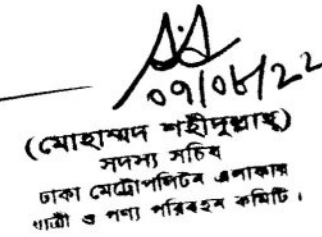 09/06/22
(মোহাম্মদ শহীদুল্লাহ্)
সদস্য সচিব
ঢাকা মেট্রোপলিটন এলাকার
যাত্রী ও পণ্য পরিবহন কমিটি।